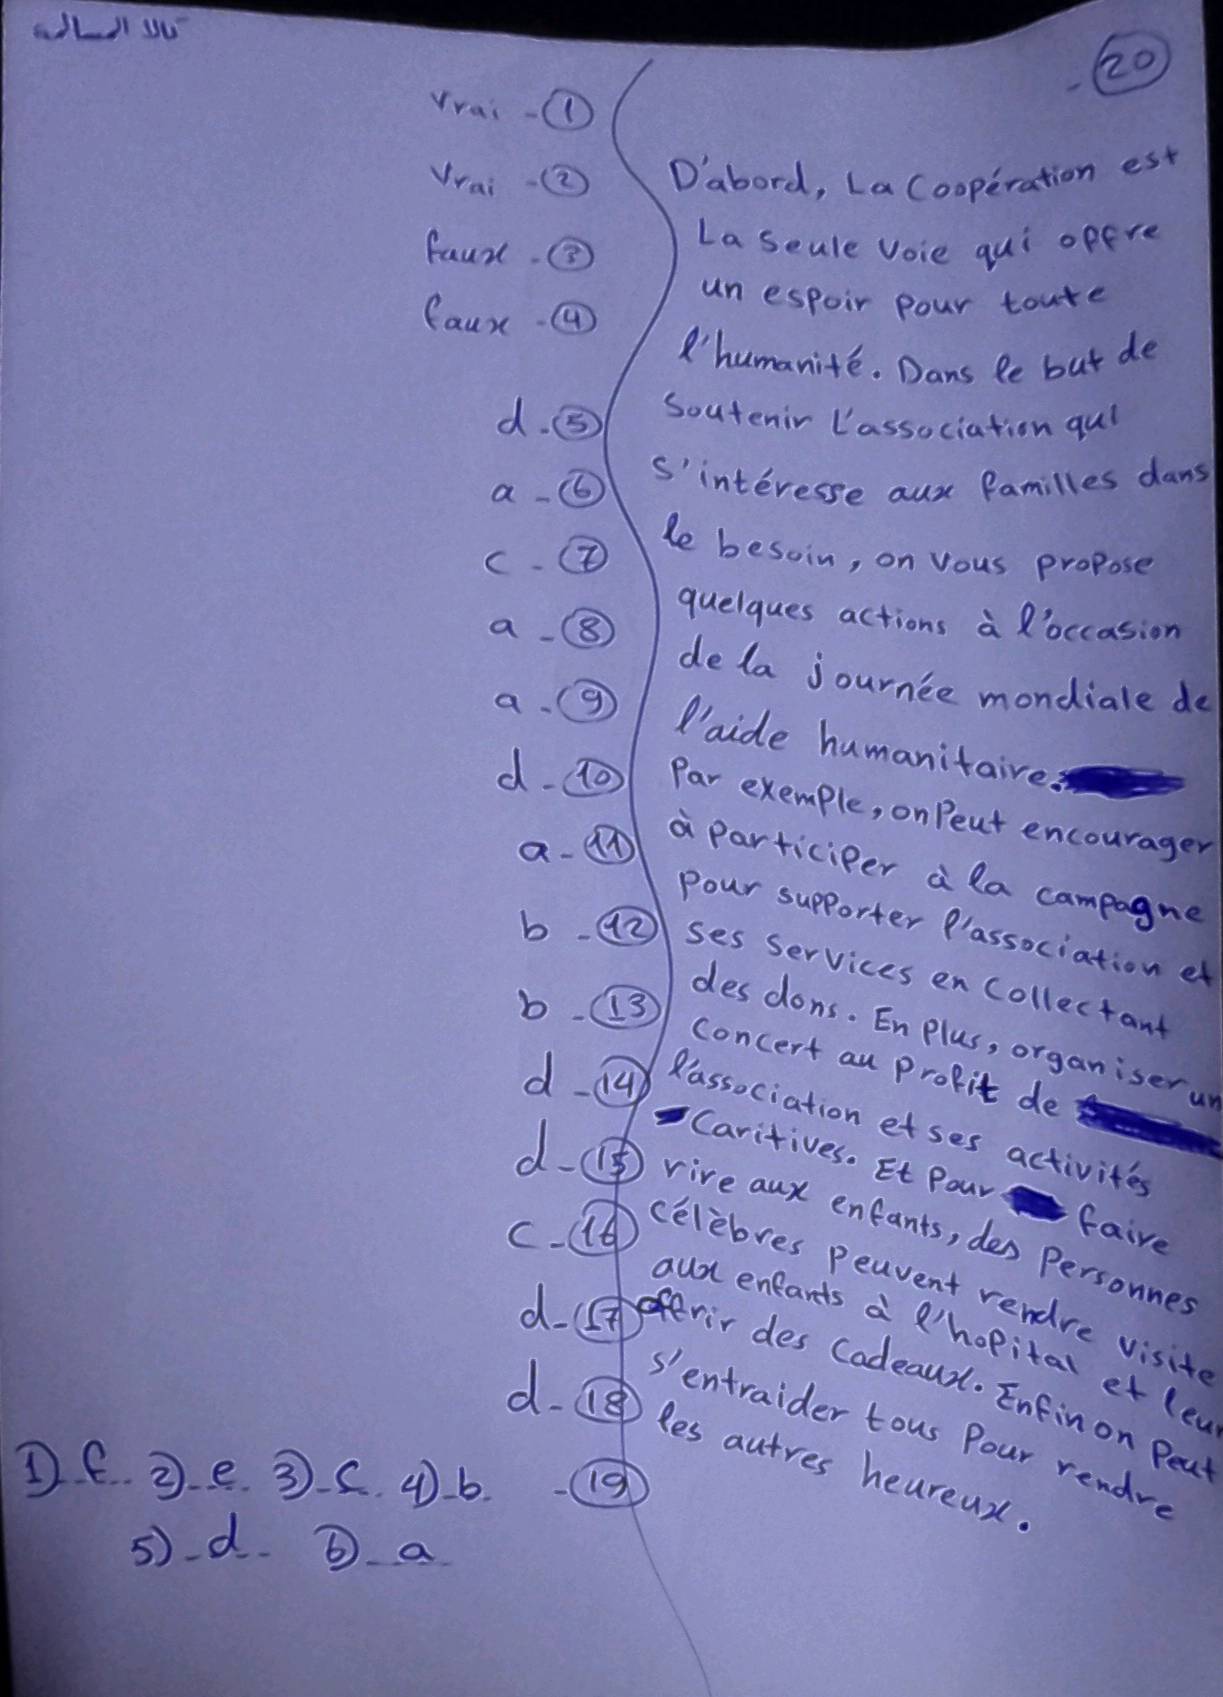 تالا السالمة
vrai - 1
vrai - 2
faux - 3
faux - 4
d - 5
a - 6
c - 7
a - 8
a - 9
d - 10
a - 11
b - 12
b - 13
d - 14
d - 15
c - 16
d - 17
d - 18
- 19
1) f. 2) e. 3) c. 4) b.
5) d. 6) a
- 20
D'abord, La Coopération est
La seule voie qui offre
un espoir pour toute
l'humanité. Dans le but de
Soutenir L'association qui
s'intéresse aux familles dans
le besoin, on vous propose
quelques actions à l'occasion
de la journée mondiale de
l'aide humanitaire.
Par exemple, on Peut encourager
à participer à la campagne
pour supporter l'association et
ses services en collectant
des dons. En plus, organiser un
concert au profit de
l'association et ses activités
Caritives. Et pour faire
rire aux enfants, des personnes
célèbres peuvent rendre visite
aux enfants à l'hopital et leur
offrir des cadeaux. Enfin on peut
s'entraider tous pour rendre
les autres heureux.